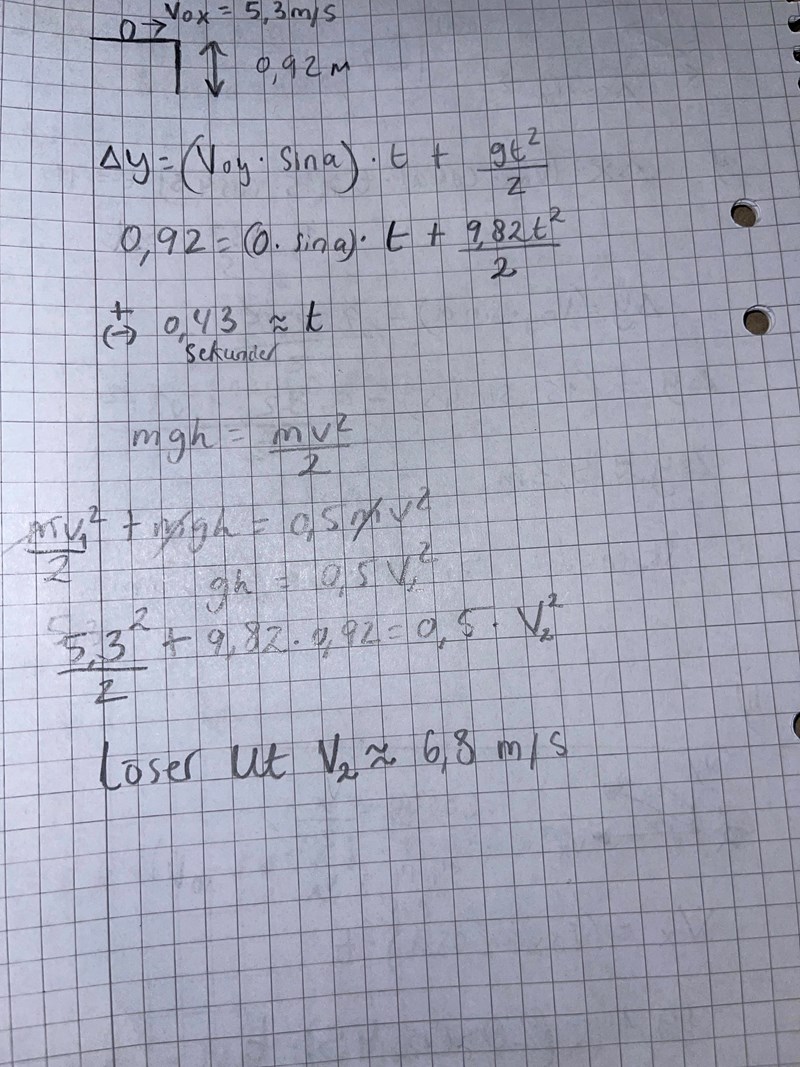 0→ V0x = 5,3 m/s
0,92 m
Δy = (V0y · sina) · t + gt²/2
0,92 = (0 · sina) · t + 9,82t²/2
± (-) 0,43 ≈ t
Sekunder
mgh = mv²/2
mv₁²/2 + mgh = 0,5mv²
gh = 0,5 V²
5,3²/2 + 9,82 · 0,92 = 0,5 · V₂²
Löser ut V₂ ≈ 6,8 m/s